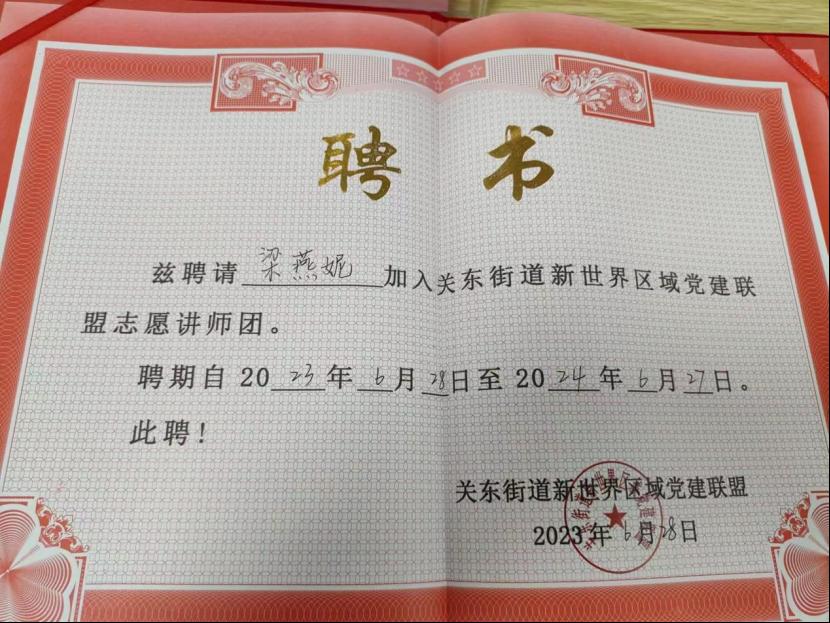 聘书
兹聘请梁燕妮加入关东街道新世界区域党建联
盟志愿讲师团。
聘期自2023年6月28日至2024年6月27日。
此聘！
关东街道新世界区域党建联盟
2023年6月28日